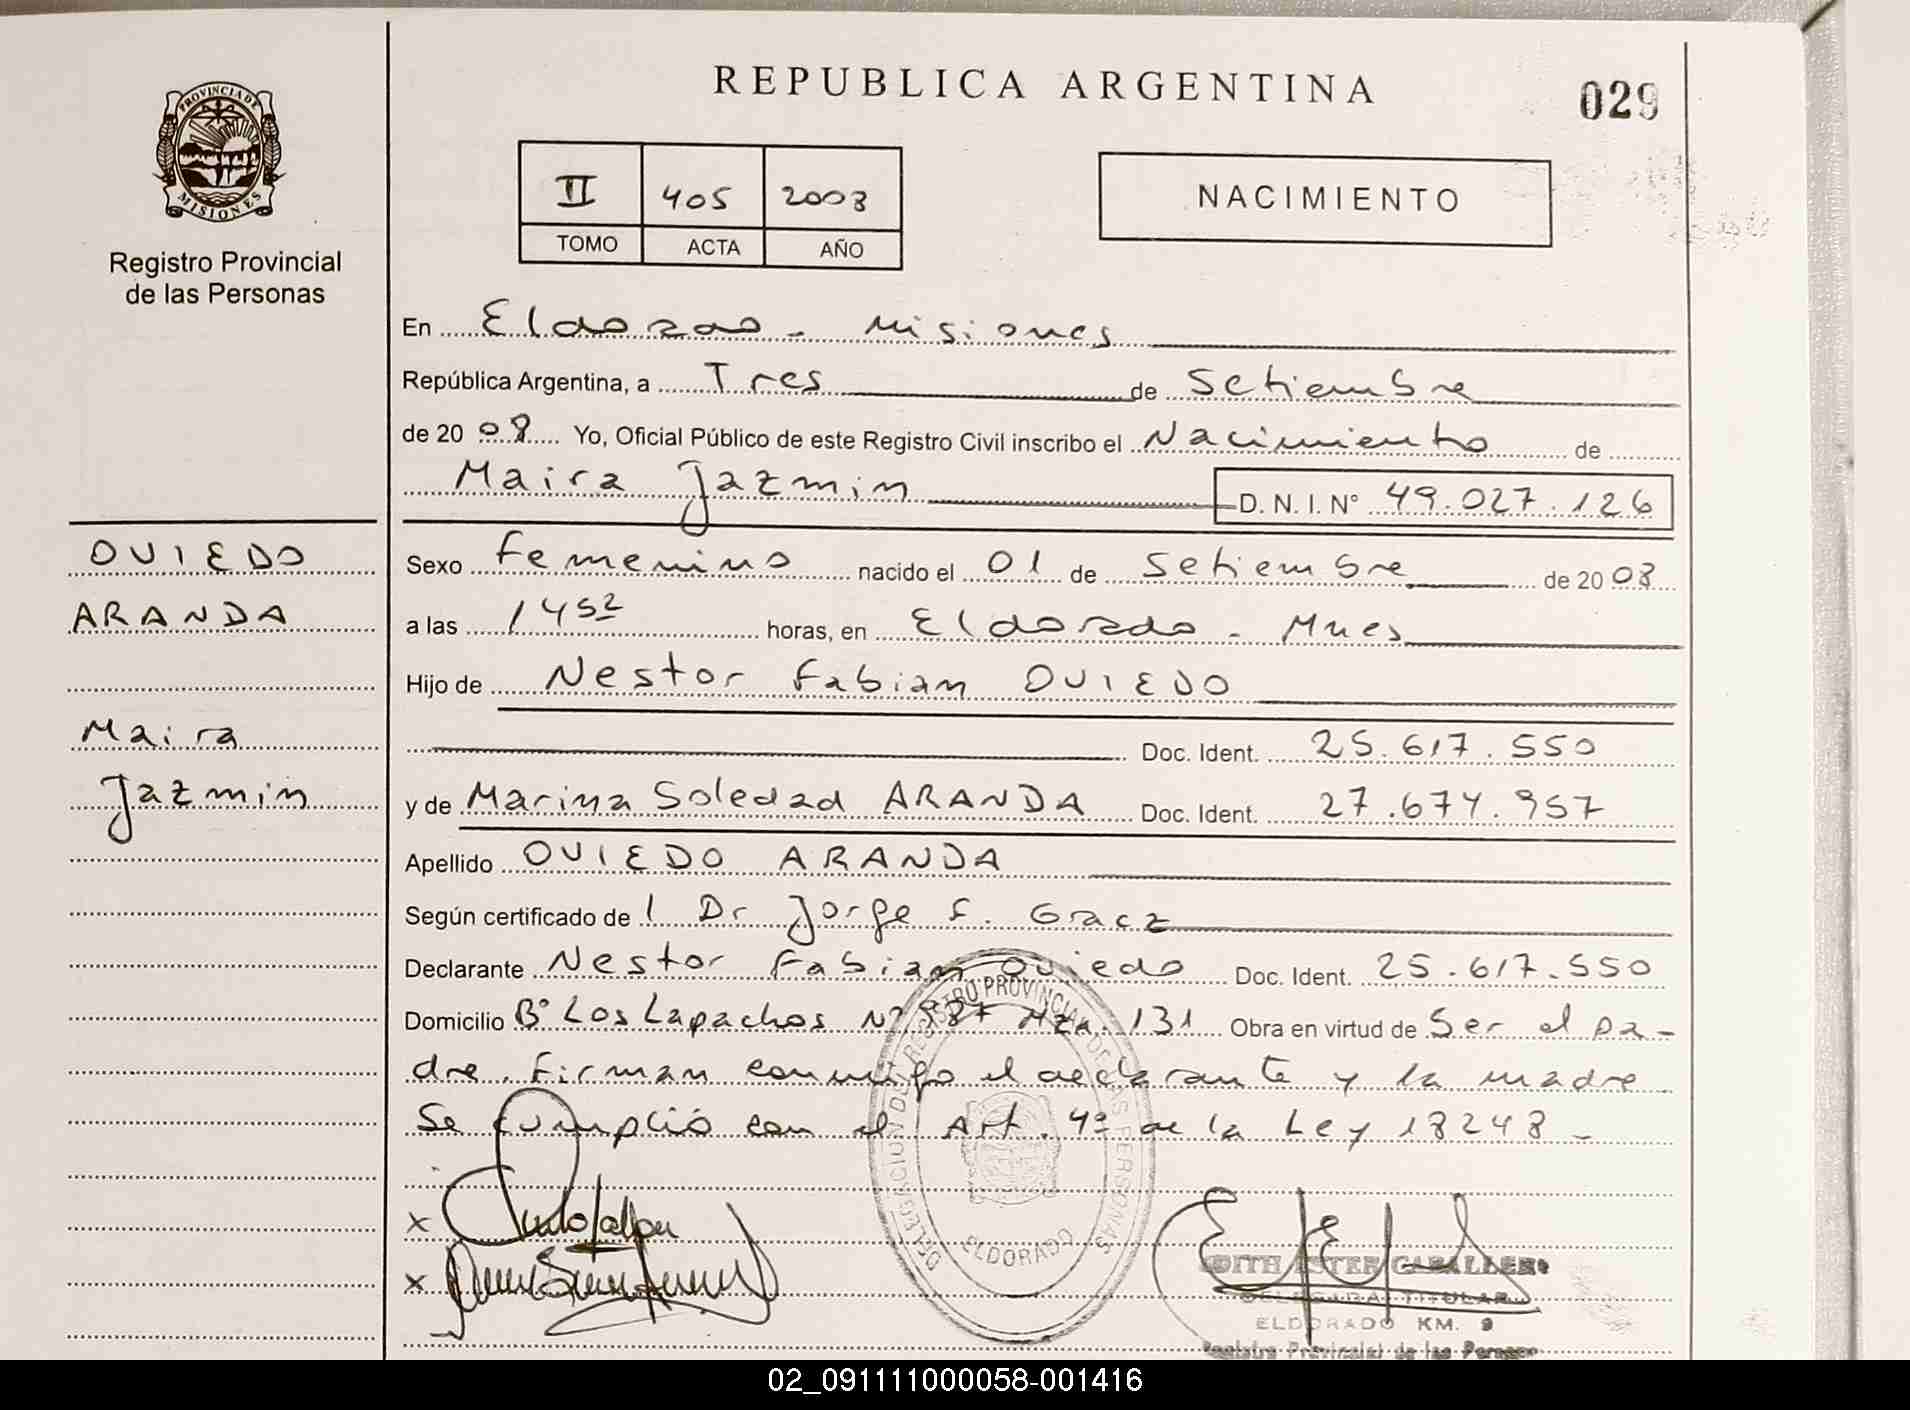 REPUBLICA ARGENTINA
029
PROVINCIA DE
MISIONES
Registro Provincial
de las Personas
II 405 2008
TOMO ACTA AÑO
NACIMIENTO
En Eldorado - Misiones
República Argentina, a Tres de Setiembre
de 2008 Yo, Oficial Público de este Registro Civil inscribo el Nacimiento de
Maira Jazmin D. N. I. Nº 49.027.126
OVIEDO
ARANDA
Maira
Jazmin
Sexo Femenino nacido el 01 de Setiembre de 2008
a las 1452 horas, en Eldorado - Mnes
Hijo de Nestor Fabian OVIEDO
Doc. Ident. 25.617.550
y de Marina Soledad ARANDA Doc. Ident. 27.674.957
Apellido OVIEDO ARANDA
Según certificado de l Dr Jorge F. Gracz
Declarante Nestor Fabian Oviedo Doc. Ident. 25.617.550
Domicilio Bº Los Lapachos Nº Mza. 131 Obra en virtud de Ser el pa-
dre. Firman conmigo el declarante y la madre
Se cumplió con el Art. 4º de la Ley 18248 -
DELEGACION DEL REGISTRO PROVINCIAL DE LAS PERSONAS
ELDORADO
x
x
EDITH ESTER CABALLERO
DELEGADA TITULAR
ELDORADO KM. 9
Registro Provincial de las Personas
02_091111000058-001416